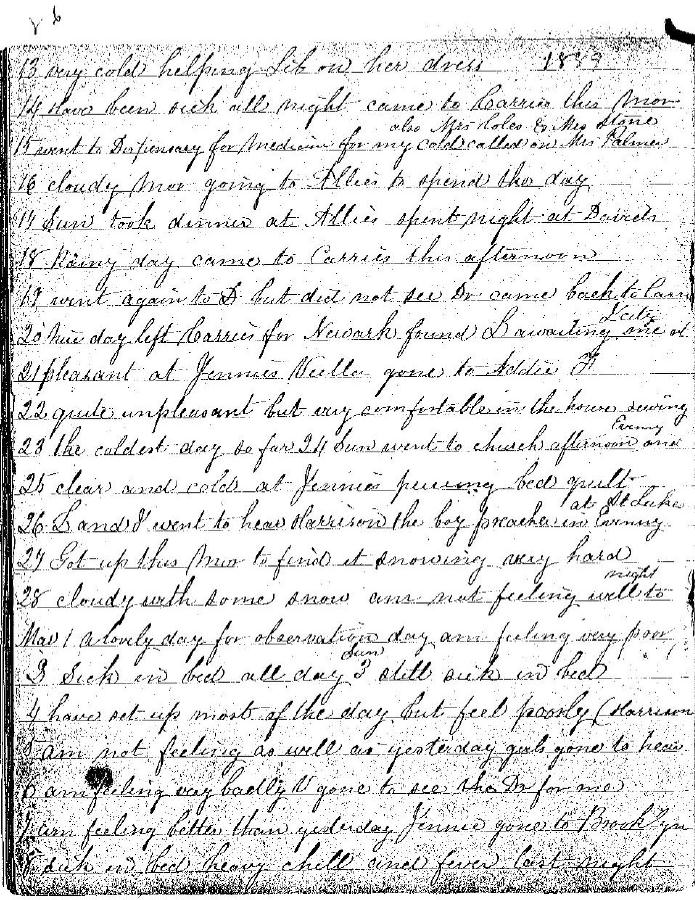 13 very cold helping Lib on her dress 1889
14 Have been sick all night came to Carries this Mor
also Mrs Coles & Mrs Stone
15 went to Dispensary for medicine for my cold called on Mrs Palmer
16 cloudy Mor going to Allies to spend the day
17 Sun took dinner at Allies spent night at Davids
18 Rainy day came to Carries this afternoon
19 went again to D but did not see Dr came back to Carri
20 Nice day left Carries for Newark found L awaiting me at
21 pleasant at Jennies Vuella gone to Addie F
22 quite unpleasant but very comfortable in the house sewing
Evening
23 the coldest day so far 24 Sun went to church afternoon and
25 clear and cold at Jennies piecing bed quilt
at St Luke
26 L and I went to hear Harrison the boy preacher in Evening
27 Got up this Mor to find it snowing very hard
night
28 cloudy with some snow am not feeling well to
Mar 1 a lovely day for observation day am feling very poor
Sun
2 Sick in bed all day 3 still sick in bed
4 have set up most of the day but feel poorly (Harrison
5 am not feeling as well as yesterday girls gone to hear
6 am feeling very badly V gone to see the Dr for me
7 am feeling better than yesterday Jennie gone to Brooklyn
8 sick in bed heavy chill and fever last night